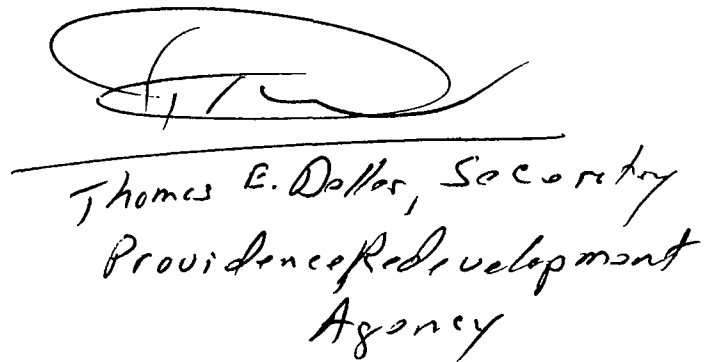 Thomas E. Deller, Secretary
Providence Redevelopment
Agency